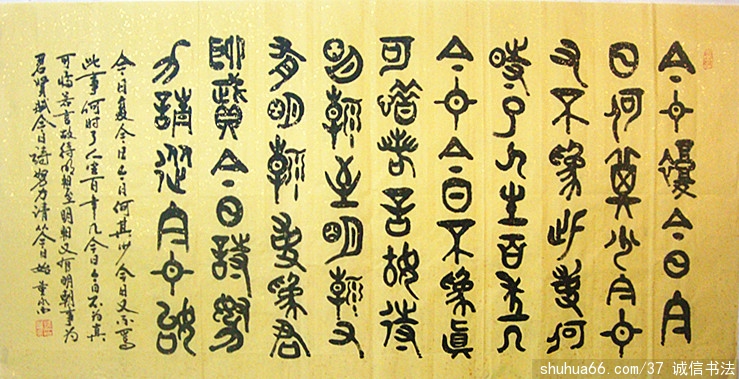 今日復今日今
日何其少今日
又不為此事何
時了人生百年几
今日今日不為真
可惜若言姑待
明朝至明朝又
有明朝事為君
聊賦今日詩努
力請從今日始
今日复今日今日何其少今日又不為
此事何时了人生百年几今日今日不为真
可惜若言故待明朝至明朝又有明朝事为
君聊赋今日诗努力请从今日始
shuhua66.com/37 诚信书法